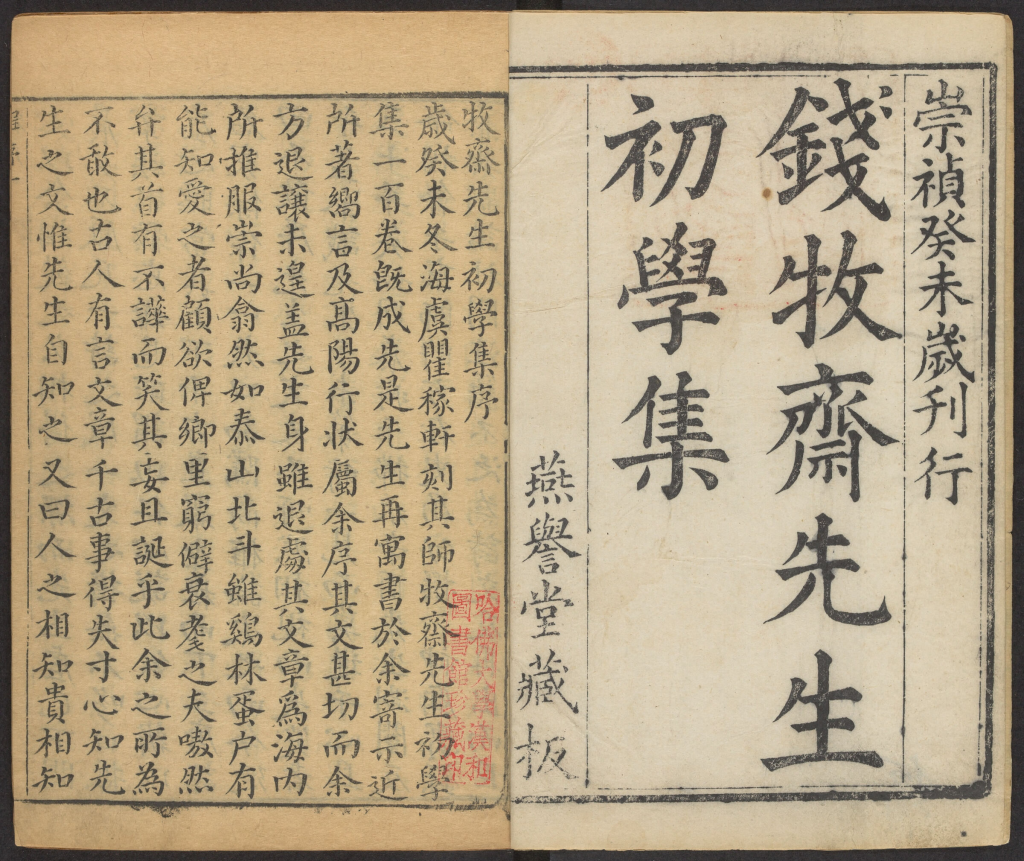 崇禎癸未歲刊行
錢牧齋先生
初學集
燕譽堂藏板
牧齋先生初學集序
歲癸未冬海虞瞿稼軒刻其師牧齋先生初學
集一百卷旣成先是先生再寓書於余寄示近
所著嚮言及髙陽行狀屬余序其文甚切而余
方退讓未遑盖先生身雖退處其文章爲海内
所推服崇尚翕然如泰山北斗雖鷄林蛋户有
能知愛之者顧欲俾鄉里窮僻衰耄之夫嗷然
弁其首有不譁而笑其妄且誕乎此余之所為
不敢也古人有言文章千古事得失寸心知先
生之文惟先生自知之又曰人之相知貴相知
程序一
哈佛大學漢和
圖書館珍藏印